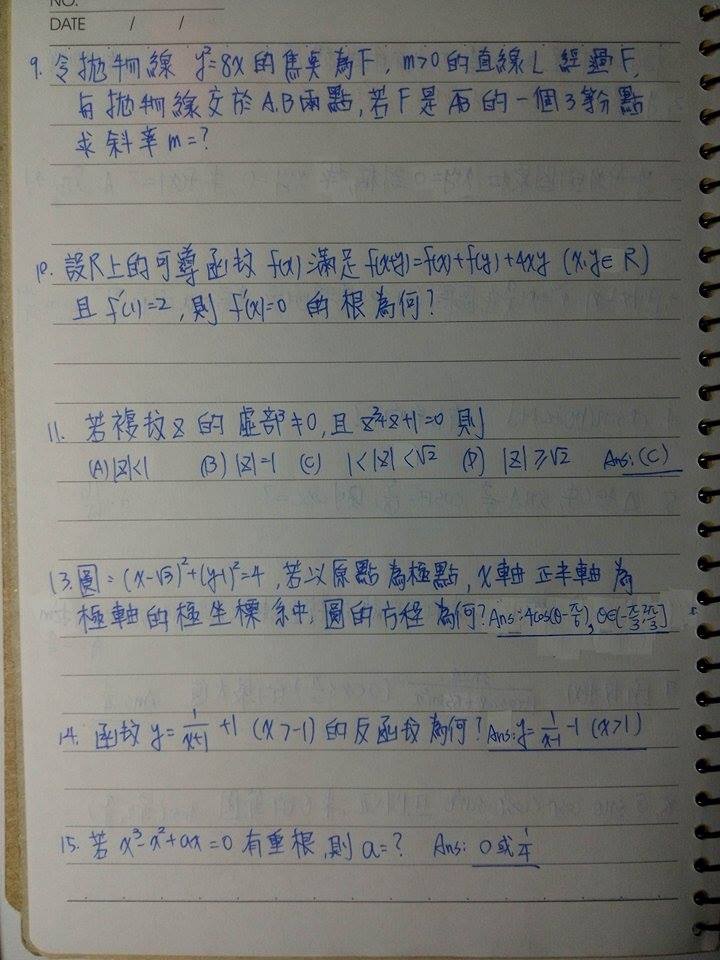 NO.
DATE / /
9. 令拋物線 y²=8x 的焦點為F, m>0 的直線 L 經過F,
與拋物線交於A.B兩點,若F是 A̅B̅ 的一個3等分點
求斜率 m=?
10. 設R上的可導函数 f(x)滿足 f(x+y)=f(x)+f(y)+4xy (x,y∈R)
且 f'(1)=2, 則 f'(x)=0 的根為何?
11. 若複数z 的虛部≠0,且 z²+z+1=0 則
(A)|z|<1 (B) |z|=1 (C) 1<|z|<√2 (D) |z|≥√2 Ans:(C)
13. 圓=(x-√3)²+(y-1)²=4, 若以原點為極點, x軸正半軸為
極軸的極坐標系中, 圓的方程為何? Ans:4cos(θ-π/6), θ∈(-π/3, 2π/3]
14. 函数 y=1/(x+1) +1 (x>-1) 的反函数為何? Ans: y=1/(x-1) -1 (x>1)
15. 若 x³-x²+ax=0 有重根,則 a=? Ans: 0或1/4